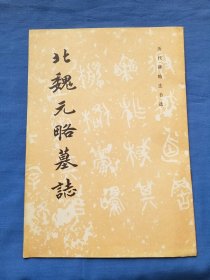 历代碑帖法书选
北魏元略墓誌